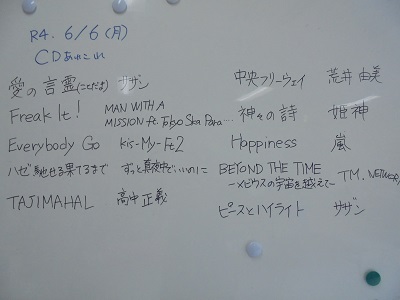 R4. 6/6 (月)
CDあれこれ
愛の言霊(ことだま) サザン
Freak It! MAN WITH A
MISSION ft. Tokyo Ska Para....
Everybody Go Kis-My-Ft2
ハゼ馳せる果てるまで ずっと真夜中でいいのに
TAJIMAHAL 高中正義
中央フリーウェイ 荒井由美
神々の詩 姫神
Happiness 嵐
BEYOND THE TIME
ーメビウスの宇宙を越えてー T.M. NETWORK
ピースとハイライト サザン